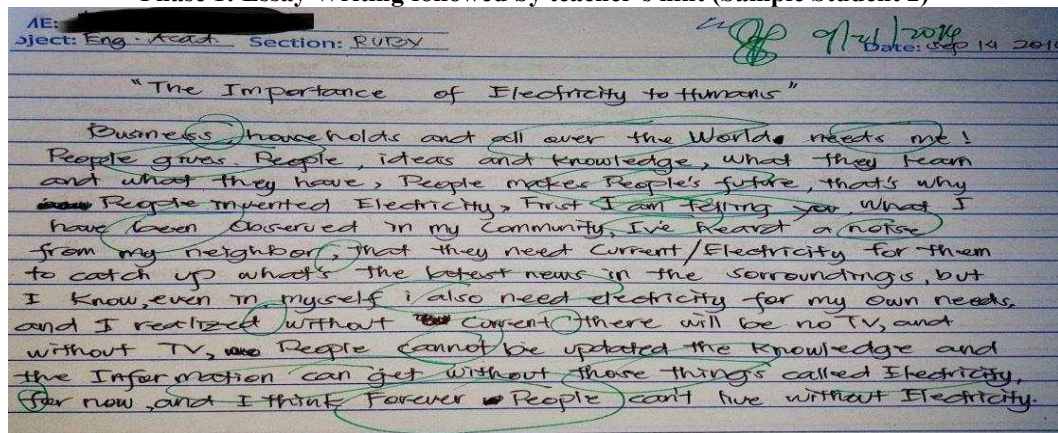 Phase 1: Essay Writing followed by teacher's hint (Sample Student 2)
AE:
oject: Eng. Acad. Section: RUBY 9/21/2014 Date: Sep 14 201
"The Importance of Electricity to Humans"
Business, households and all over the World. needs me!
People gives People, ideas and knowledge, what they learn
and what they have, People makes People's future, that's why
People invented Electricity, First I am telling you what I
have been observed in my community, I've heard a noise
from my neighbor, that they need Current/Electricity for them
to catch up what's the latest news in the sorroundings, but
I know, even in myself i also need electricity for my own needs,
and I realized without Current there will be no TV, and
without TV, People cannot be updated the knowledge and
the Information can get without those things called Electricity,
for now, and I think Forever People can't live without Electricity.